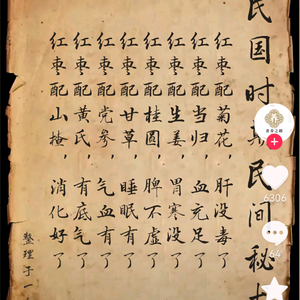 民国时期民间秘
红枣配菊花，肝没毒了
红枣配当归，血充足了
红枣配生姜，胃寒没了
红枣配桂圆，脾不虚了
红枣配甘草，睡眠有了
红枣配党参，气血有了
红枣配黄氏，有底气了
红枣配山楂，消化好了
整理于一
养
6306
64